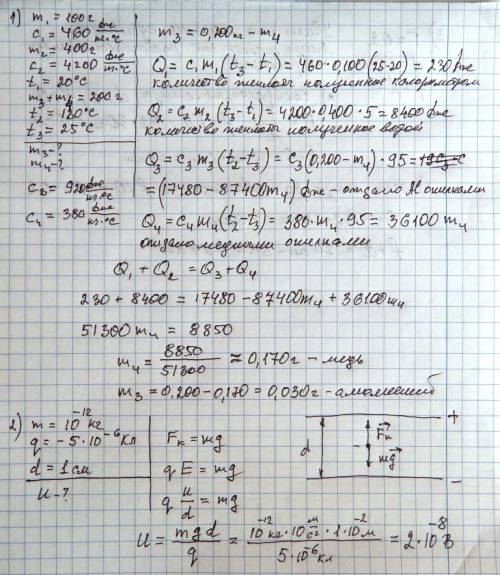 1) m₁ = 100г
c₁ = 460 дж/кг·°C
m₂ = 400г
c₂ = 4200 дж/кг·°C
t₁ = 20°C
m₃ + m₄ = 200г
t₂ = 120°C
t₃ = 25°C
m₃ - ?
m₄ - ?
c₃ = 920 дж/кг·°C
c₄ = 380 дж/кг·°C
m₃ = 0,200кг - m₄
Q₁ = c₁ m₁ (t₃ - t₁) = 460·0,100 (25-20) = 230 дж
количество теплоты полученное калориметром
Q₂ = c₂ m₂ (t₃ - t₁) = 4200·0,400·5 = 8400 дж
количество теплоты полученное водой
Q₃ = c₃ m₃ (t₂ - t₃) = c₃ (0,200 - m₄)·95 =
= (17480 - 87400 m₄) дж - отдано Al опилками
Q₄ = c₄ m₄ (t₂ - t₃) = 380·m₄·95 = 36100 m₄
отдано медными опилками
Q₁ + Q₂ = Q₃ + Q₄
230 + 8400 = 17480 - 87400 m₄ + 36100 m₄
51300 m₄ = 8850
m₄ = 8850/51300 ≈ 0,170г - медь
m₃ = 0,200 - 0,170 = 0,030г - алюминий
2) m = 10⁻¹² кг
q = -5·10⁻⁶ Кл
d = 1 см
U - ?
Fк = mg
qE = mg
q U/d = mg
U = mgd/q = 10⁻¹² кг·10 м/с²·1·10⁻² м / 5·10⁻⁶ Кл = 2·10⁻⁸ В
d
+
Fк
-
mg
-